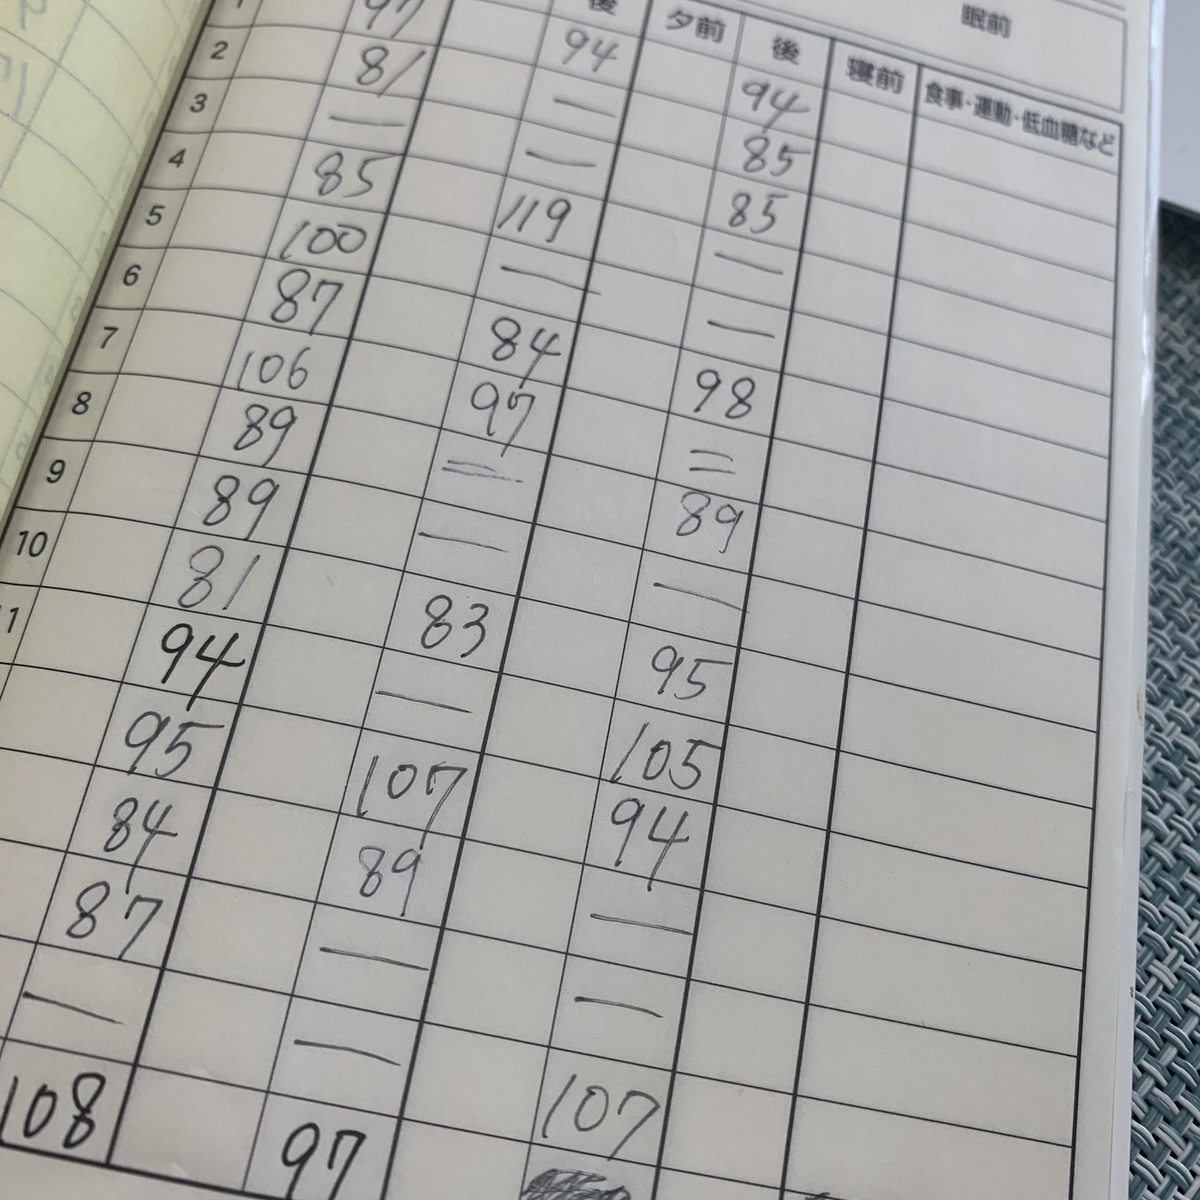 眠前
後 夕前 後 寝前 食事・運動・低血糖など
1 97 94 94
2 81 — 85
3 — — 85
4 85 119 —
5 100 — —
6 87 84 98
7 106 97 =
8 89 = 89
9 89 — —
10 81 83 95
11 94 — 105
95 107 94
84 89 —
87 — —
— — 107
108 97